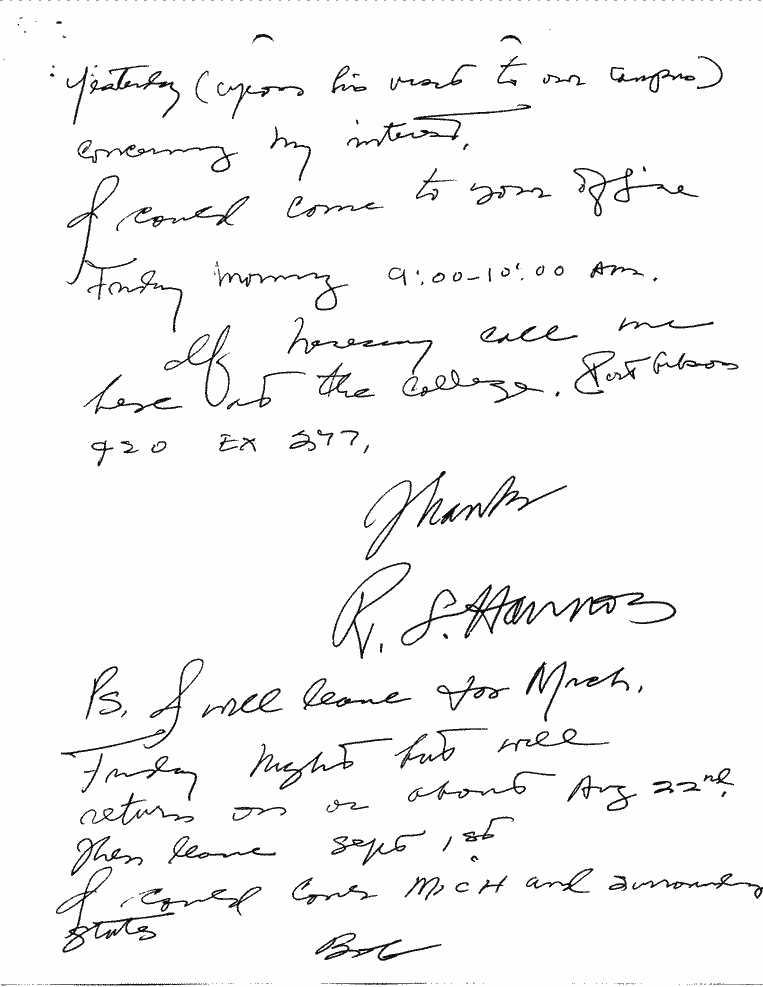 Yesterday (upon his visit to our campus)
concerning my interest,
I could come to your office
Friday Morning 9:00-10:00 Am.
If necessary call me
here at the college. Port Gibson
420 EX 277,
Thanks
R. S.
Ps. I will leave for Mich.
Friday Night but will
return on or about Aug 22nd,
Then leave Sept 1st
I could cover MICH and surrounding
states
Bob